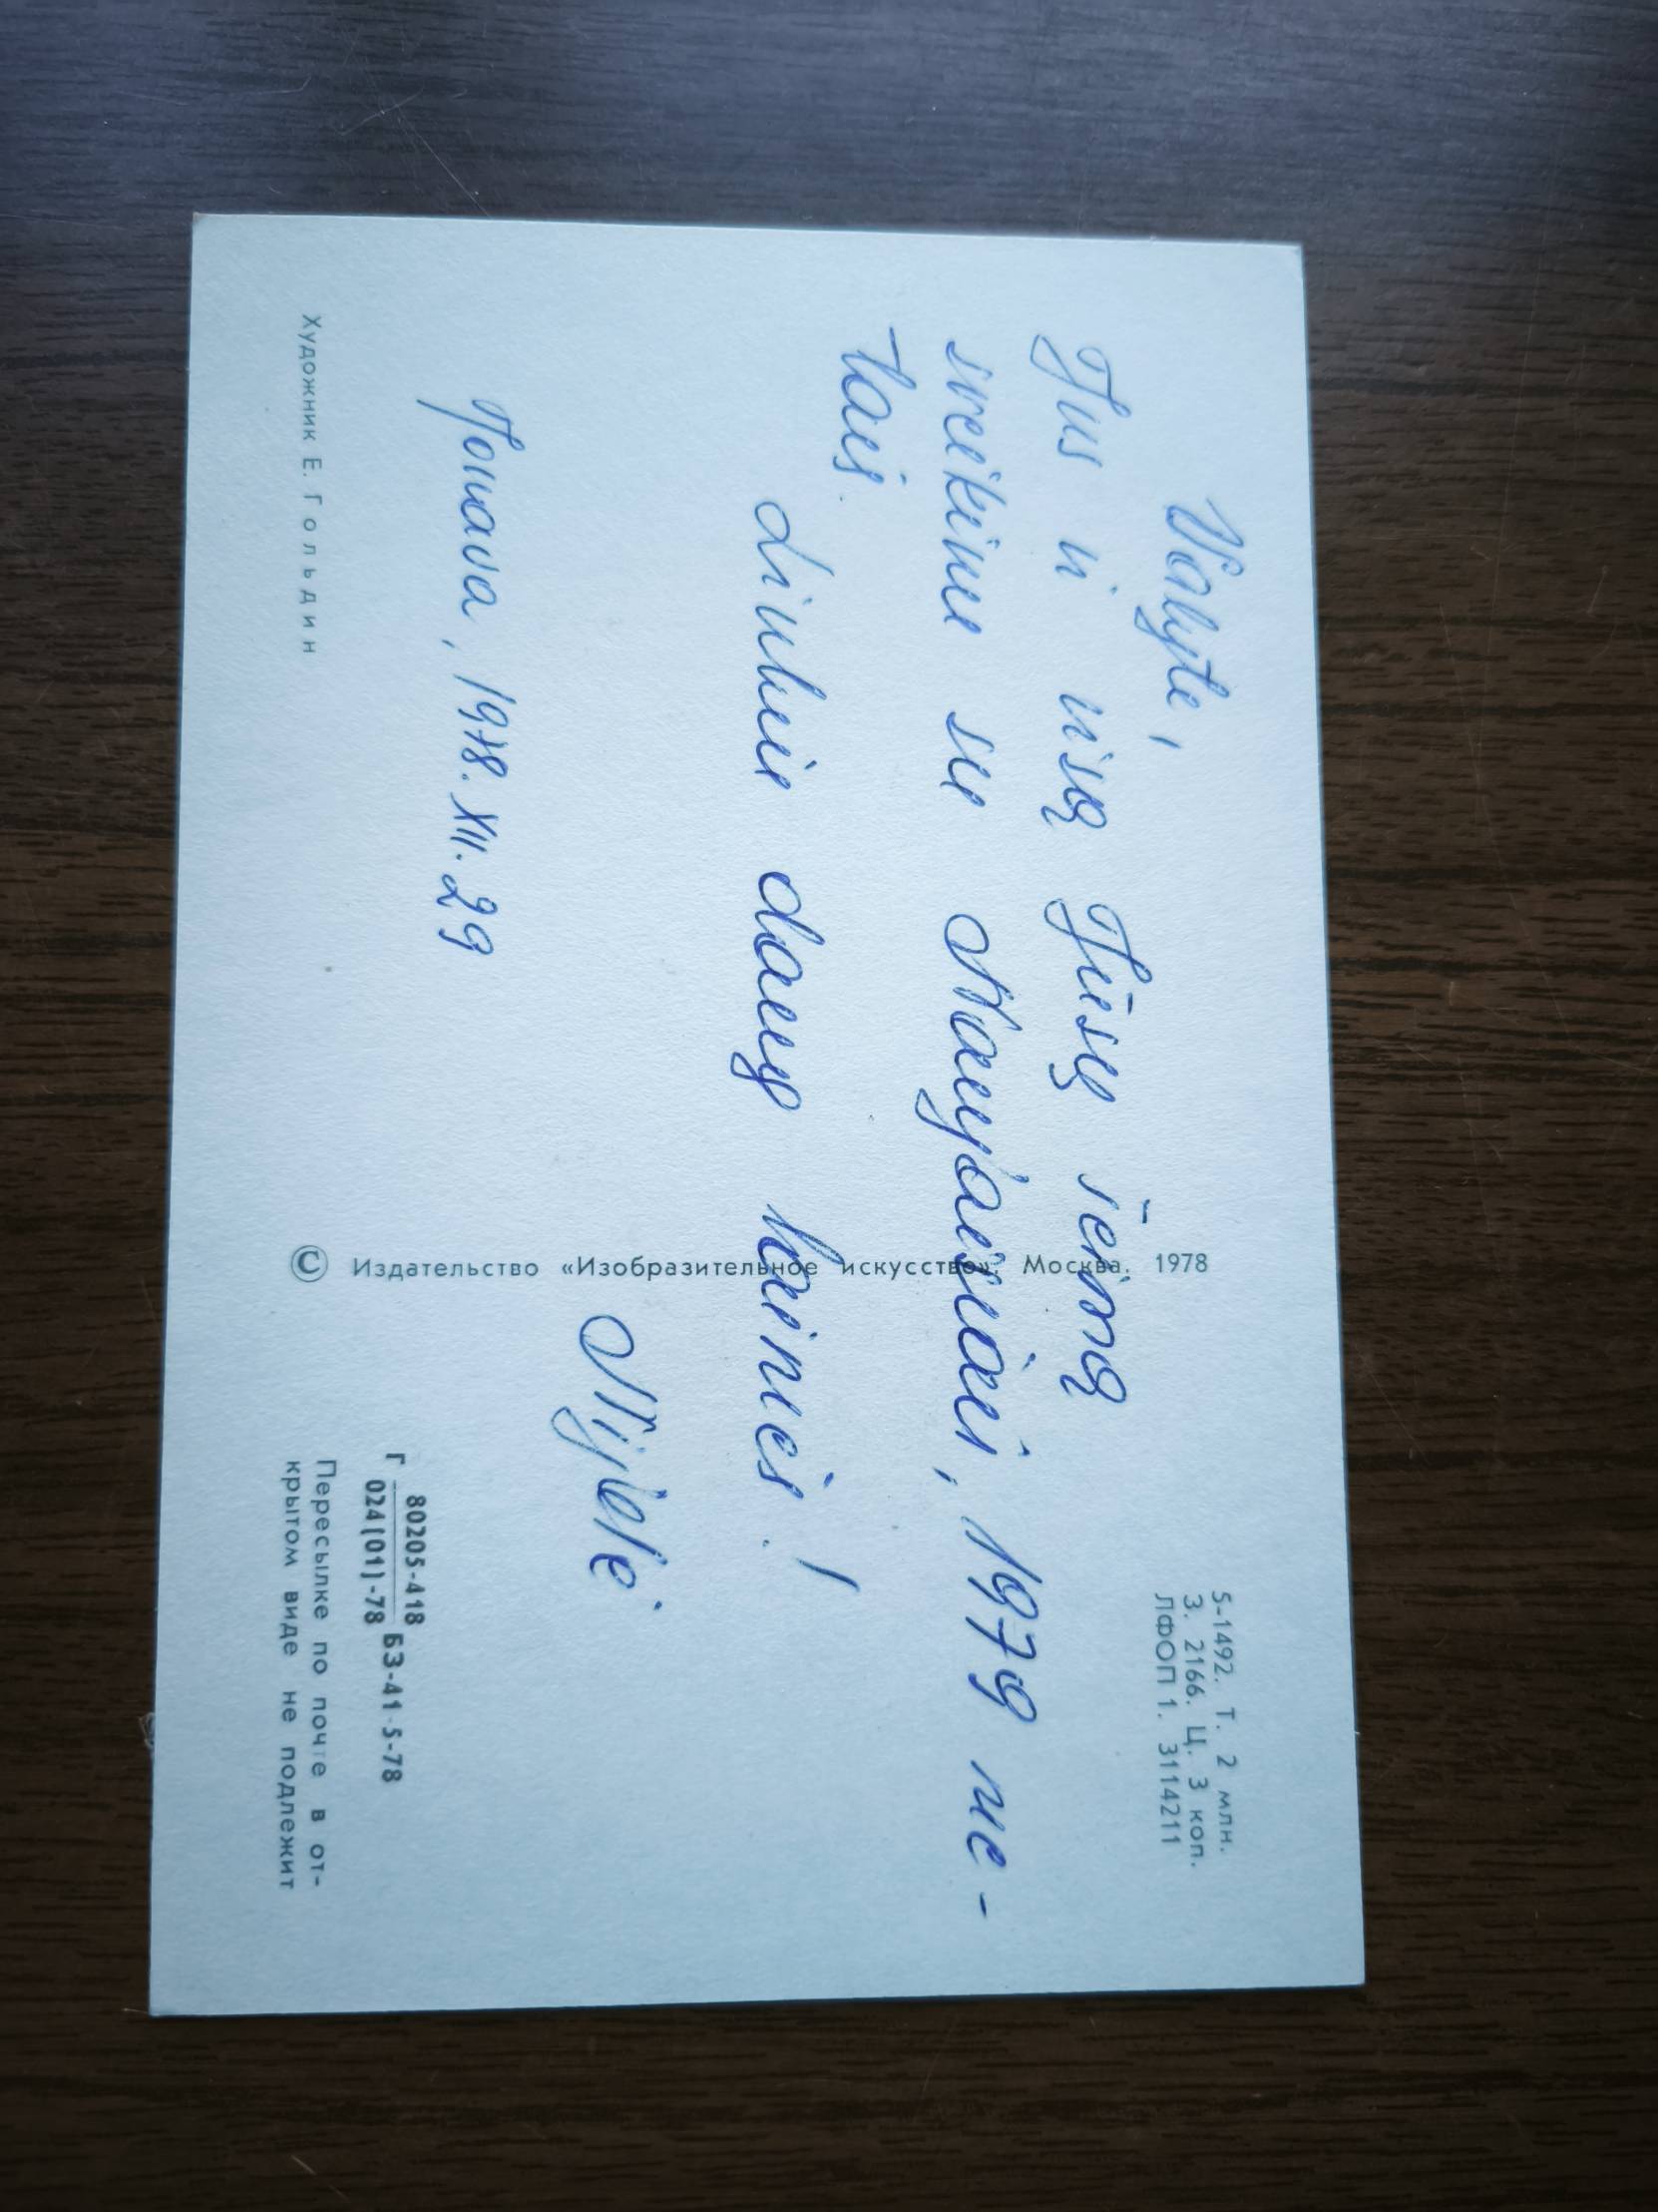 5-1492. Т. 2 млн.
З. 2166. Ц. 3 коп.
ЛФОП 1. 3114211
Valyte,
Jus ir visą Jūsų šeimą
sveikinu su Naujaisiais, 1979 me-
tais.
Linkiu daug laimės!
Nijolė
Jonava, 1978.XII.29
Художник Е. Гольдин
© Издательство «Изобразительное искусство». Москва. 1978
Г 80205-418
024(01)-78 БЗ-41-5-78
Пересылке по почте в от-
крытом виде не подлежит